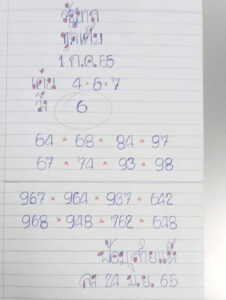 1 ก.ค. 65
เด่น 4 · 6 · 7
6
64 * 68 * 84 * 97
67 * 74 * 93 * 98
967 * 964 * 937 * 642
968 * 948 * 762 * 648
24 มิ.ย. 65